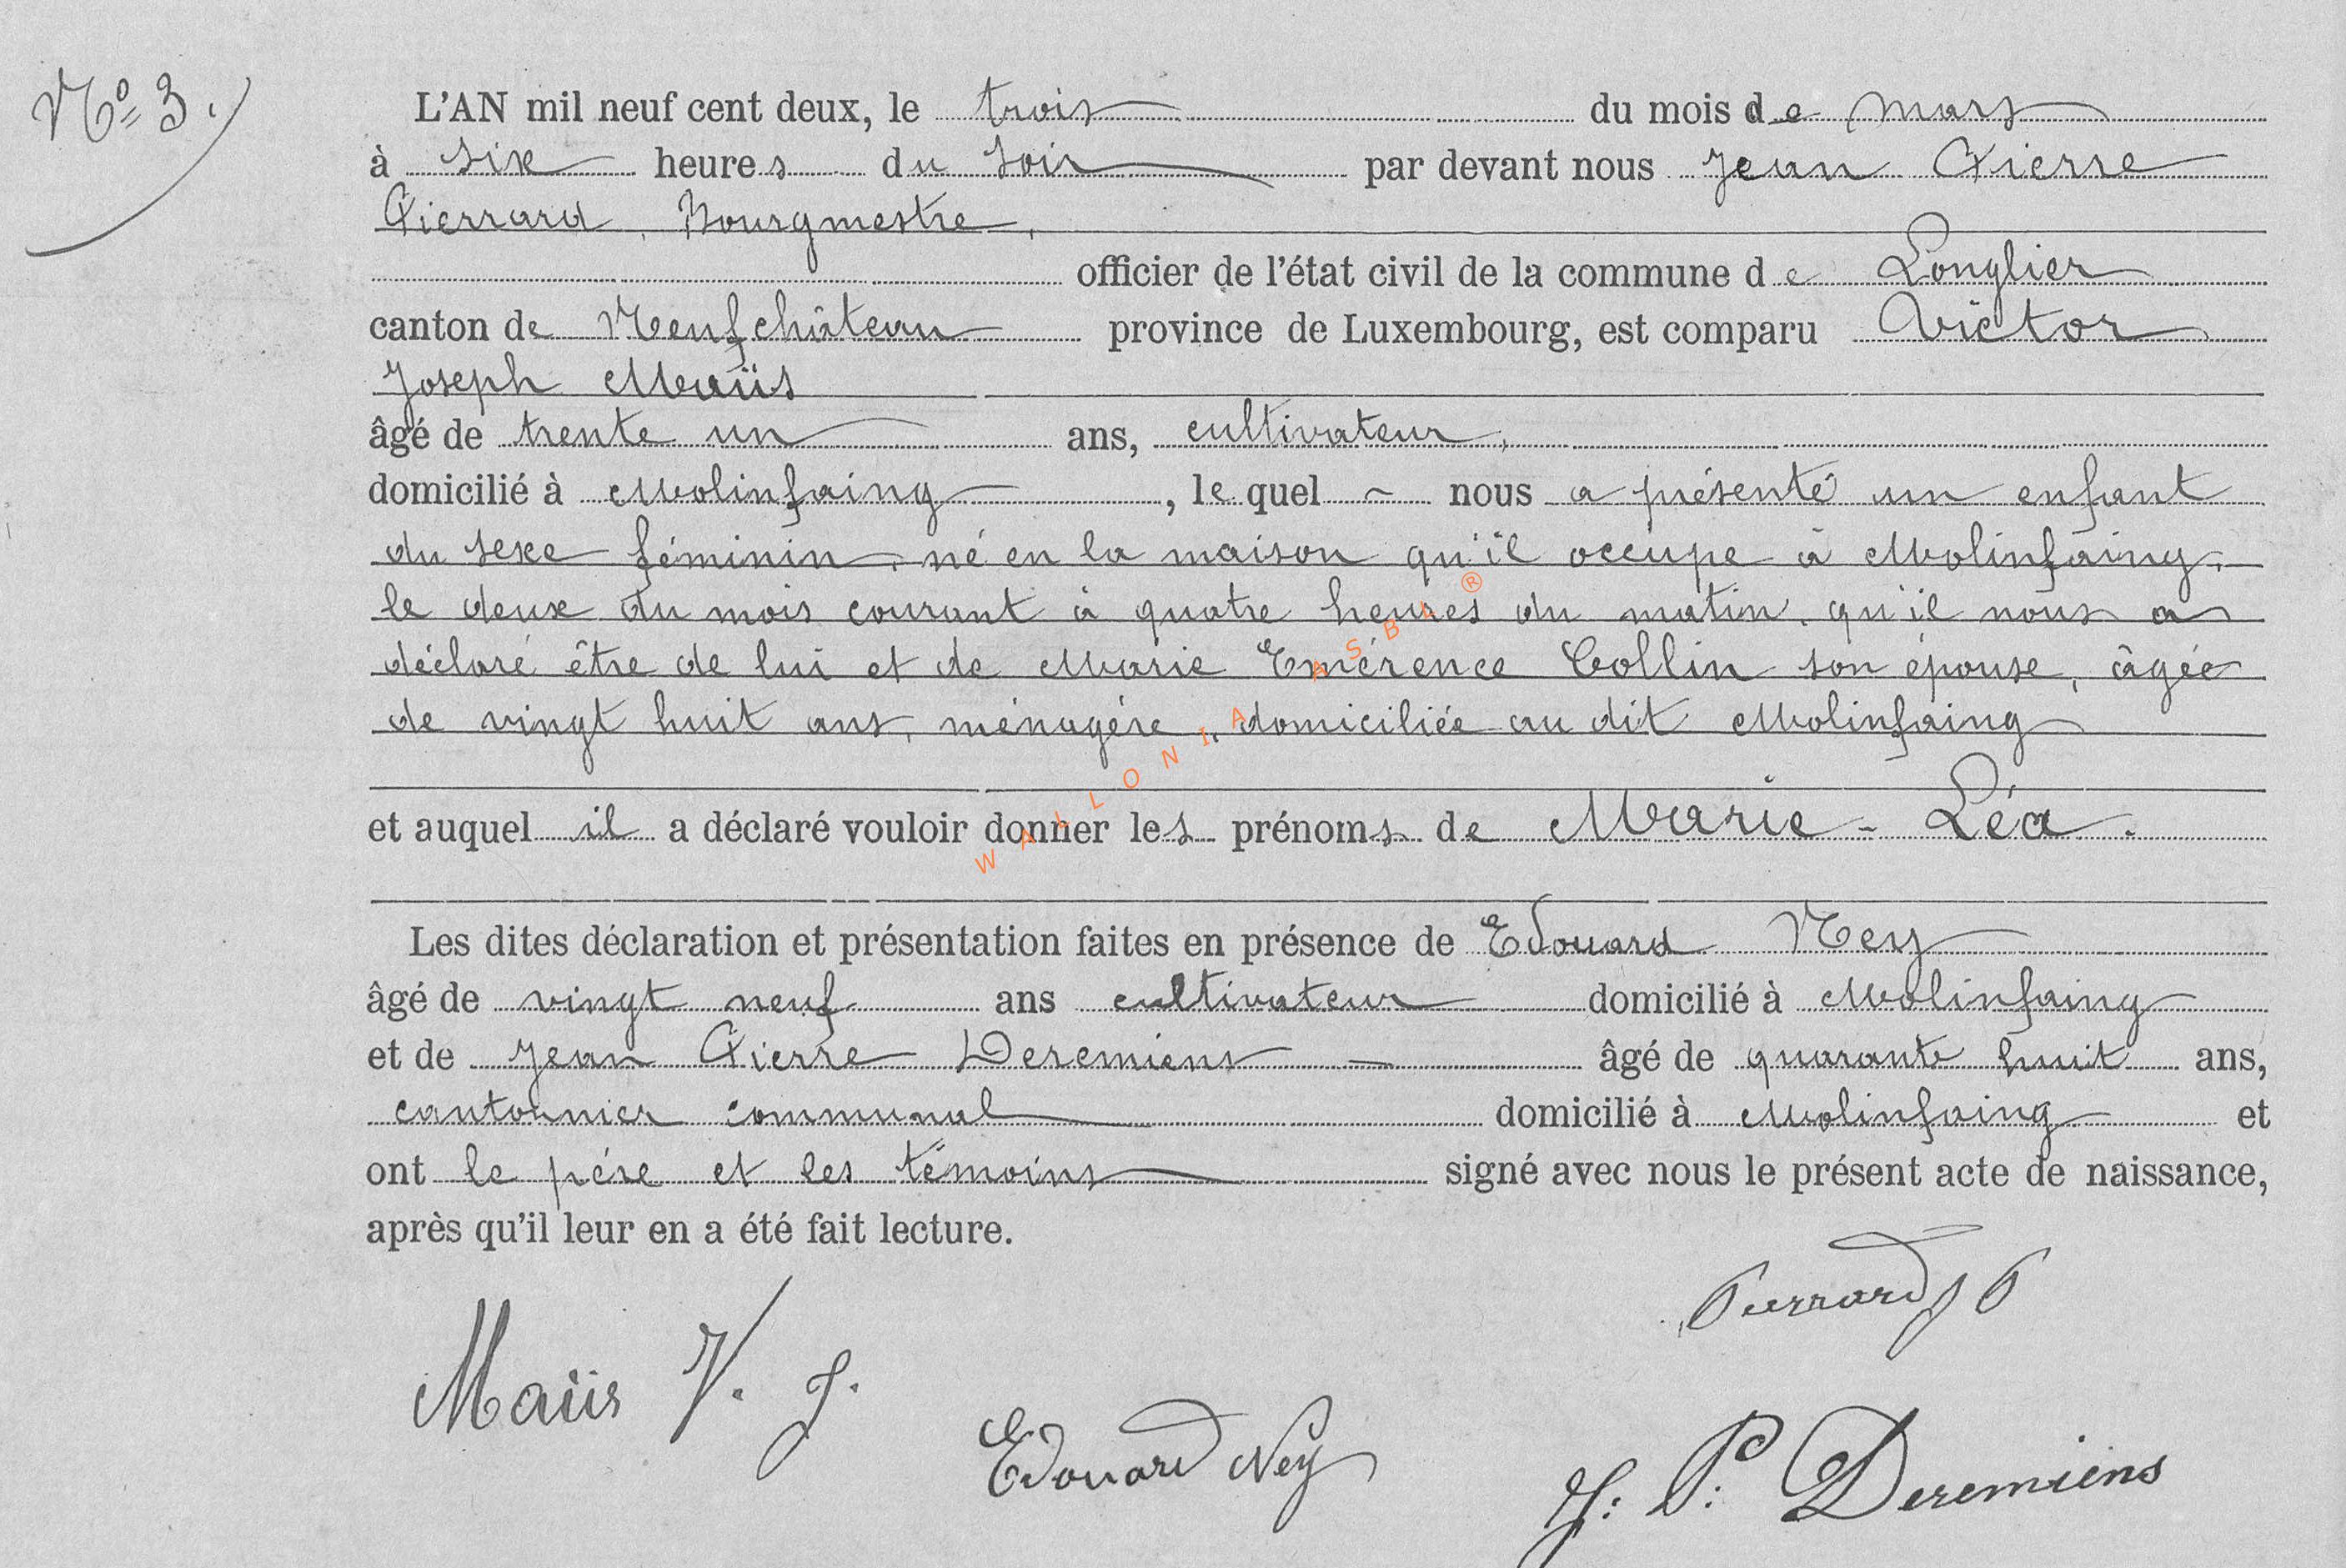 Nº 3.
L'AN mil neuf cent deux, le trois du mois de mars
à six heures du soir par devant nous Jean Pierre
Pierrard, Bourgmestre,
officier de l'état civil de la commune de Longlier
canton de Neufchâteau province de Luxembourg, est comparu Victor
Joseph Maüs
âgé de trente un ans, cultivateur,
domicilié à Molinfaing, le quel ~ nous a présenté un enfant
du sexe féminin, né en la maison qu'il occupe à Molinfaing,
le deux du mois courant à quatre heures du matin, qu'il nous a
déclaré être de lui et de Marie Emérence Collin son épouse, âgée
de vingt huit ans, ménagère, domiciliée au dit Molinfaing
et auquel il a déclaré vouloir donner les prénoms de Marie - Léa.
Les dites déclaration et présentation faites en présence de Edouard Ney
âgé de vingt neuf ans cultivateur domicilié à Molinfaing
et de Jean Pierre Deremiens âgé de quarante huit ans,
cantonnier communal domicilié à Molinfaing et
ont le père et les témoins signé avec nous le présent acte de naissance,
après qu'il leur en a été fait lecture.
Pierrard J P
Maüs V. J.
Edouard Ney
J: P: Deremiens
WALLONIA ASBL ®